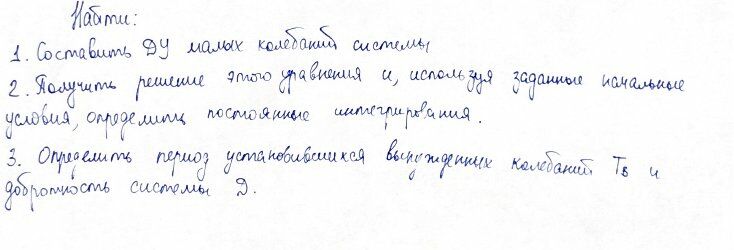 Найти:
1. Составить ДУ малых колебаний системы
2. Получить решение этого уравнения и, используя заданные начальные
условия, определить постоянные интегрирования.
3. Определить период установившихся вынужденных колебаний Тв и
добротность системы D.